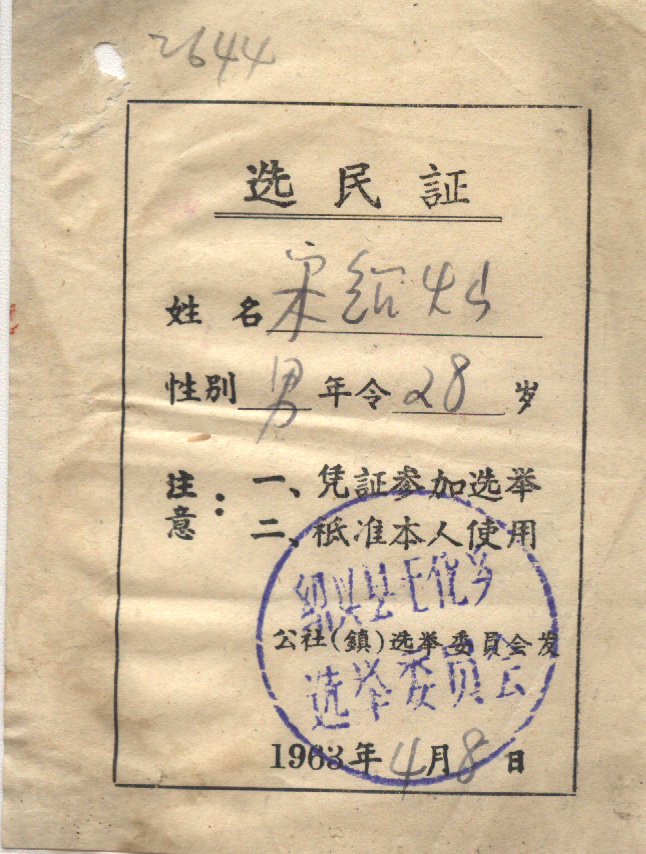 2644
选民証
姓名 宋绍灿
性别 男 年令 28 岁
注意：
一、凭証参加选举
二、祗准本人使用
绍兴县王化乡
公社(鎮)选举委員会发
选举委员会
1963年4月8日